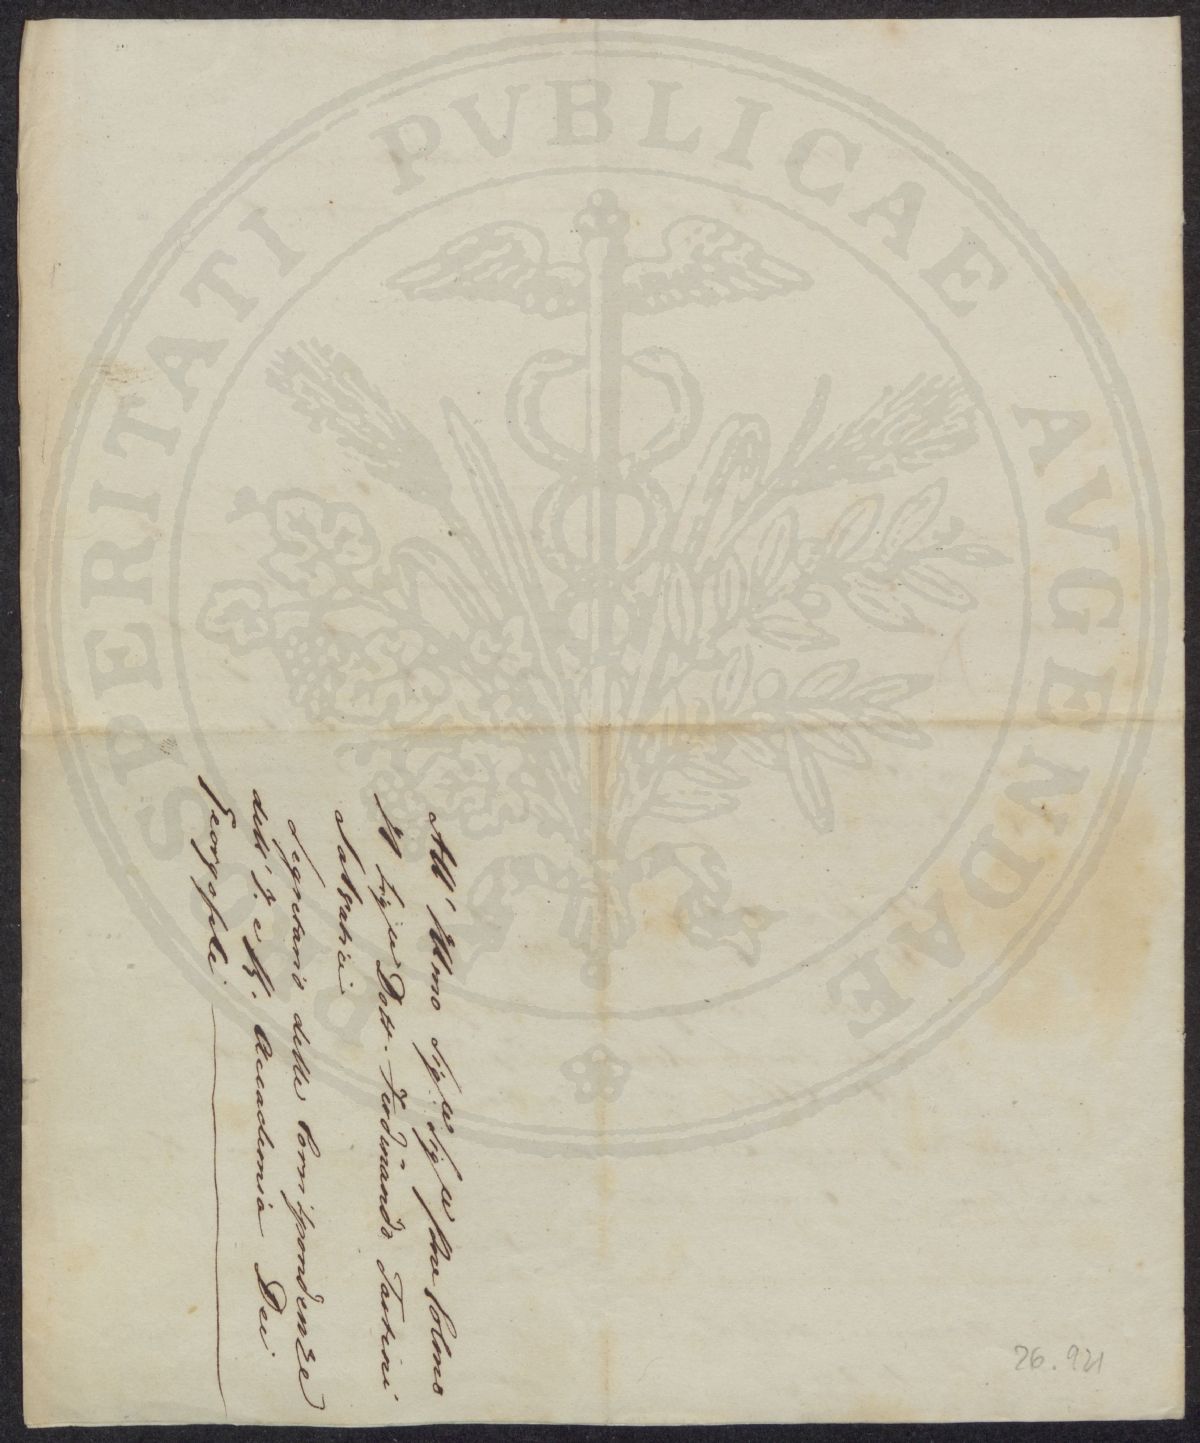 All' Illmo Sig.re Sig.re Pne Colmo
Il Sig.re Dott. Ferdinando Tartini
Salvatici
Segretario delle Corrispondenze
dell' I. e R. Accademia Dei
Georgofili
26.921
PROSPERITATI PVBLICAE AVGENDAE